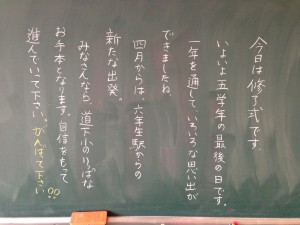 今日は修了式です。
いよいよ五学年の最後の日です。
一年を通して、いろいろな思い出が
できましたね。
四月からは、六年生駅からの
新たな出発。
みなさんなら、道下小のりっぱな
お手本となります。自信をもって
進んでいて下さい。がんばて下さい!!